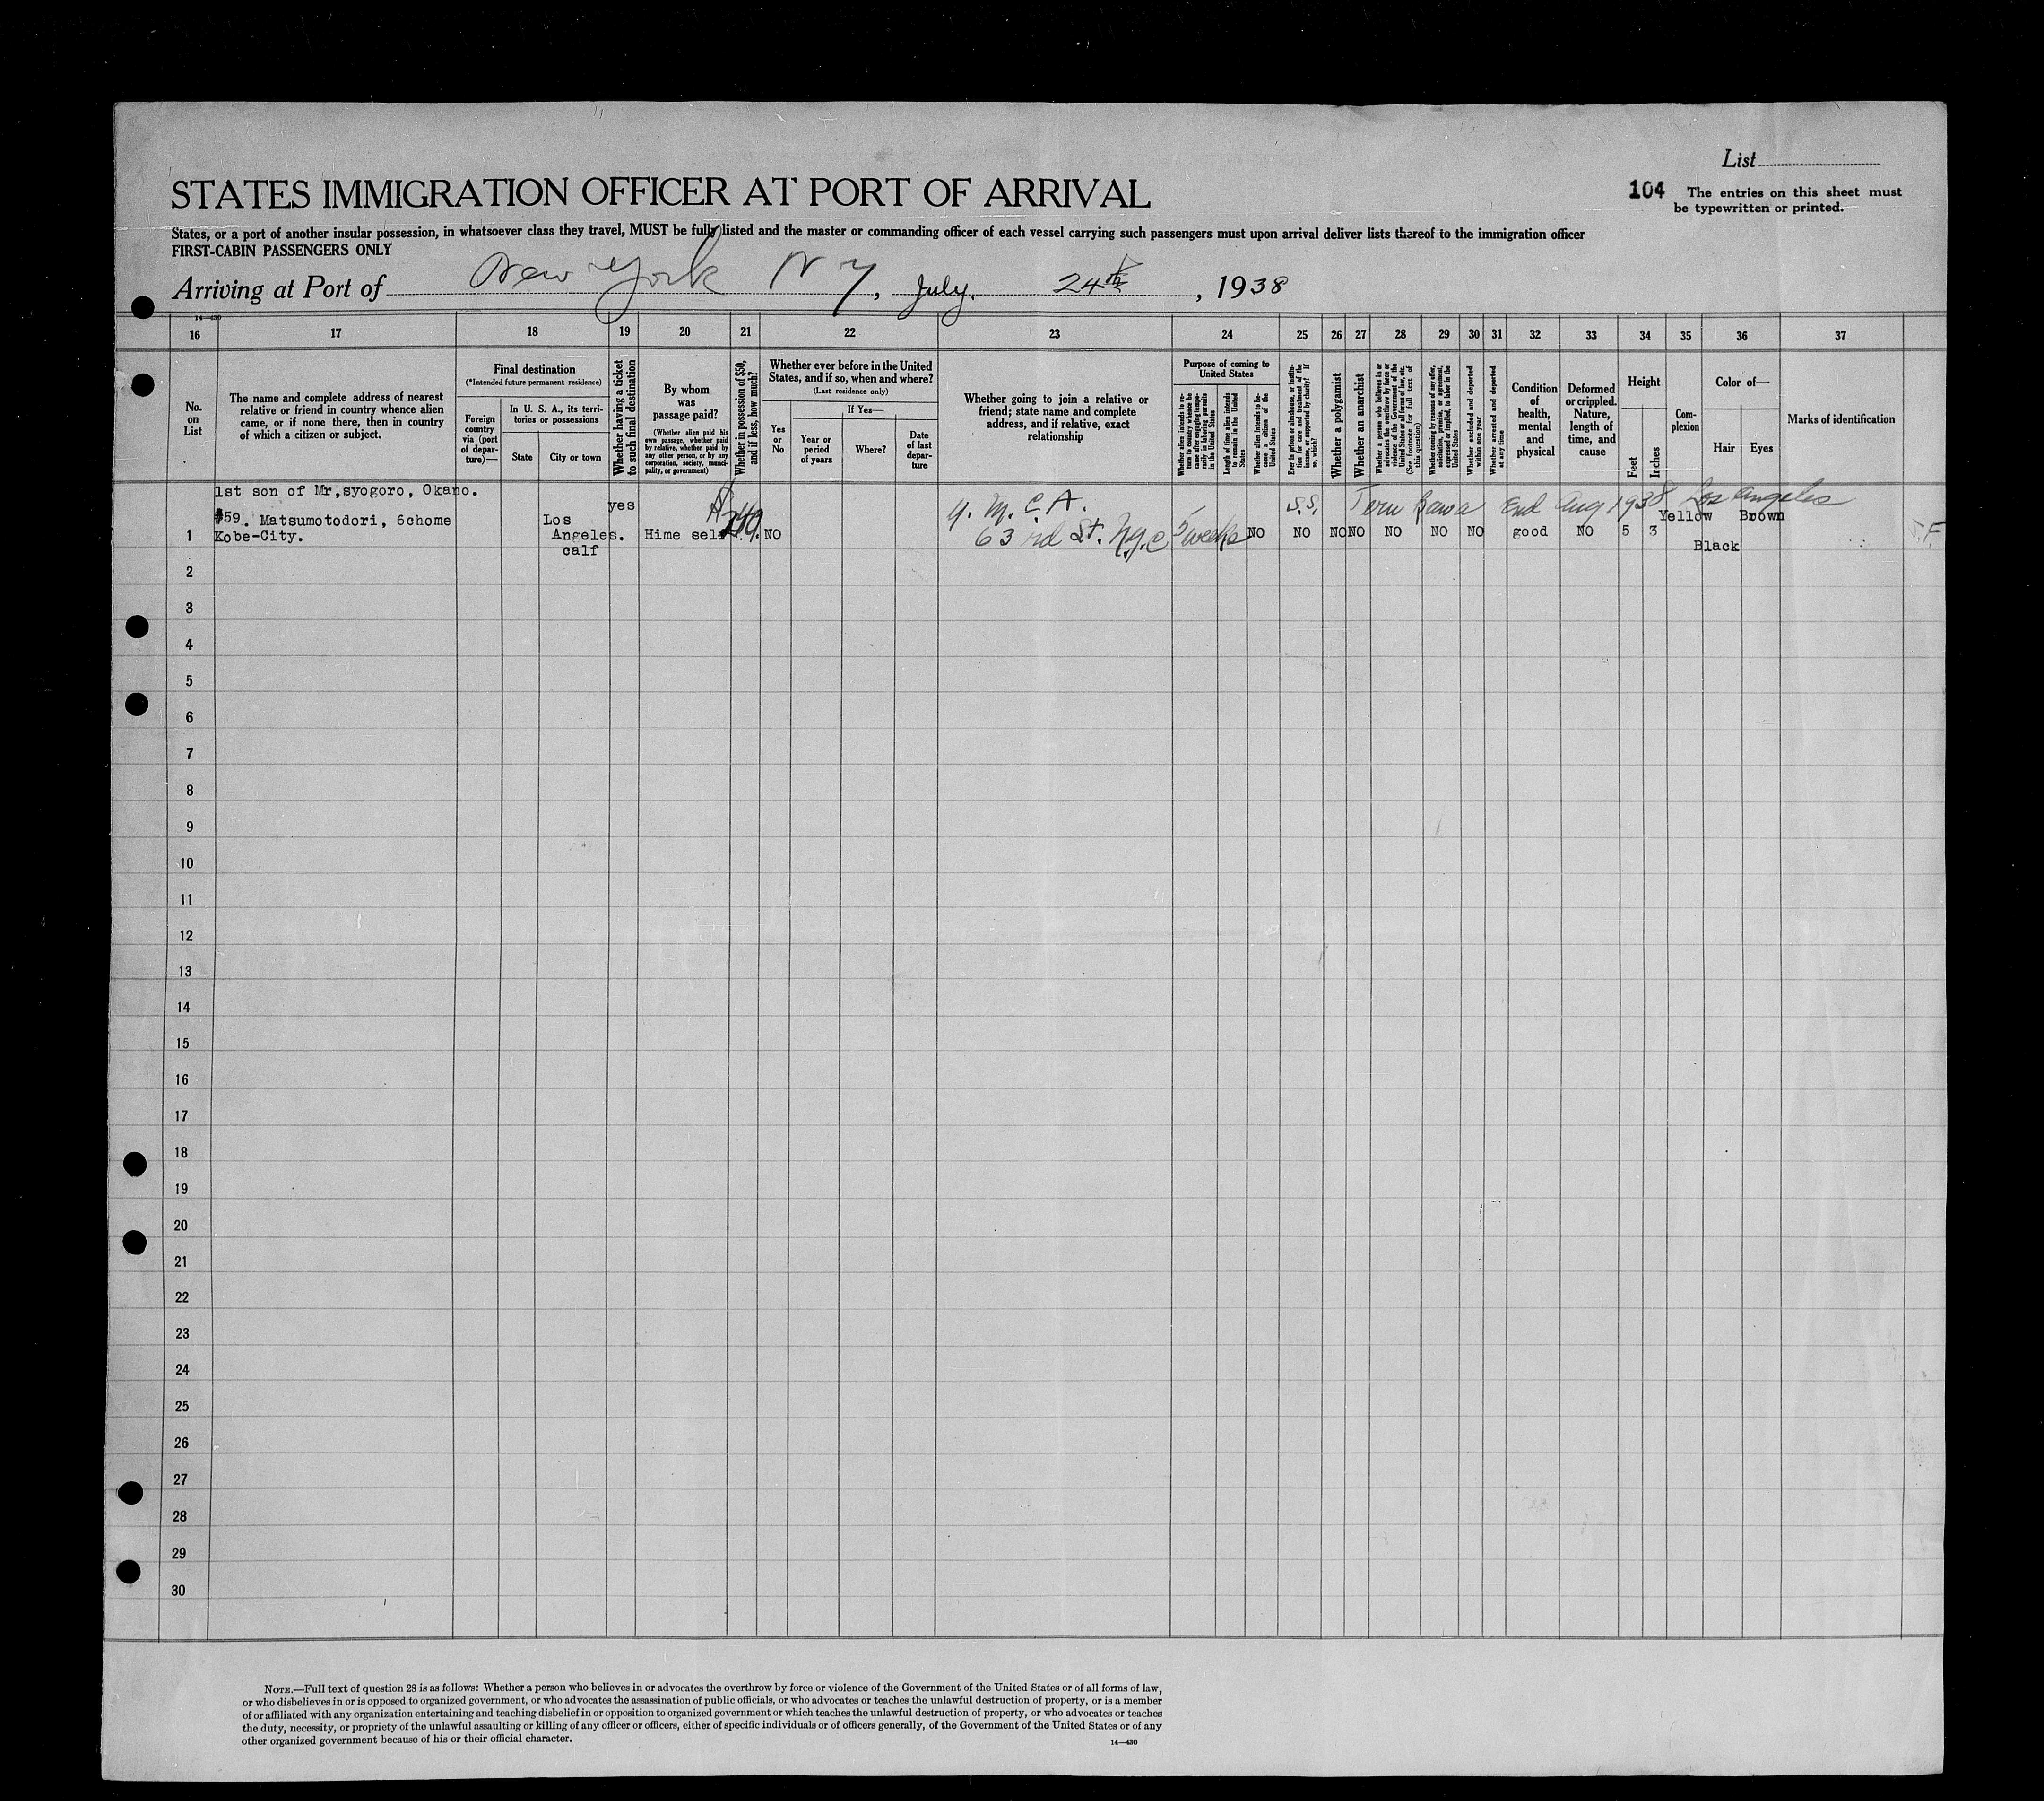 List
104 The entries on this sheet must
be typewritten or printed.
STATES IMMIGRATION OFFICER AT PORT OF ARRIVAL
States, or a port of another insular possession, in whatsoever class they travel, MUST be fully listed and the master or commanding officer of each vessel carrying such passengers must upon arrival deliver lists thereof to the immigration officer
FIRST-CABIN PASSENGERS ONLY
Arriving at Port of New York N Y, July. 24th, 1938
14-430
16 17 18 19 20 21 22 23 24 25 26 27 28 29 30 31 32 33 34 35 36 37
No.
on
List
The name and complete address of nearest
relative or friend in country whence alien
came, or if none there, then in country
of which a citizen or subject.
Final destination
(*Intended future permanent residence)
Foreign
country
via (port
of depar-
ture)—
In U. S. A., its terri-
tories or possessions
State
City or town
Whether having a ticket
to such final destination
By whom
was
passage paid?
(Whether alien paid his
own passage, whether paid
by relative, whether paid by
any other person, or by any
corporation, society, munici-
pality, or government)
Whether in possession of $50,
and if less, how much?
Whether ever before in the United
States, and if so, when and where?
(Last residence only)
Yes
or
No
If Yes—
Year or
period
of years
Where?
Date
of last
depar-
ture
Whether going to join a relative or
friend; state name and complete
address, and if relative, exact
relationship
Purpose of coming to
United States
Whether alien intends to re-
turn to country whence he
came after engaging tempo-
rarily in laboring pursuits
in the United States
Length of time alien intends
to remain in the United
States
Whether alien intends to be-
come a citizen of the
United States
Ever in prison or almshouse, or institu-
tion for care and treatment of the
insane, or supported by charity? If
so, which?
Whether a polygamist
Whether an anarchist
Whether a person who believes in or
advocates the overthrow by force or
violence of the Government of the
United States or all forms of law, etc.
(See footnote for full text of
this question)
Whether coming by reasons of any offer,
solicitation, promise, or agreement,
expressed or implied, to labor in the
United States
Whether excluded and deported
within one year
Whether arrested and deported
at any time
Condition
of
health,
mental
and
physical
Deformed
or crippled.
Nature,
length of
time, and
cause
Height
Feet
Inches
Com-
plexion
Color of—
Hair
Eyes
Marks of identification
1st son of Mr,syogoro, Okano.
#59. Matsumotodori, 6chome
Kobe-City.
Los
Angeles.
calf
yes
Hime self
NO
Y. M. C. A.
63 rd St. N.Y.C
5 weeks
S.S. End Aug 1938 Los Angeles
NO NO NO NO NO NO NO good NO 5 3
Yellow Brown
Black
1
2
3
4
5
6
7
8
9
10
11
12
13
14
15
16
17
18
19
20
21
22
23
24
25
26
27
28
29
30
NOTE.—Full text of question 28 is as follows: Whether a person who believes in or advocates the overthrow by force or violence of the Government of the United States or of all forms of law,
or who disbelieves in or is opposed to organized government, or who advocates the assassination of public officials, or who advocates or teaches the unlawful destruction of property, or is a member
of or affiliated with any organization entertaining and teaching disbelief in or opposition to organized government or which teaches the unlawful destruction of property, or who advocates or teaches
the duty, necessity, or propriety of the unlawful assaulting or killing of any officer or officers, either of specific individuals or of officers generally, of the Government of the United States or of any
other organized government because of his or their official character.
14—430